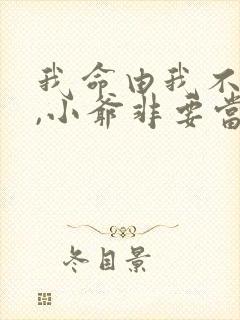 我命由我不
,小爷非要当
冬目景